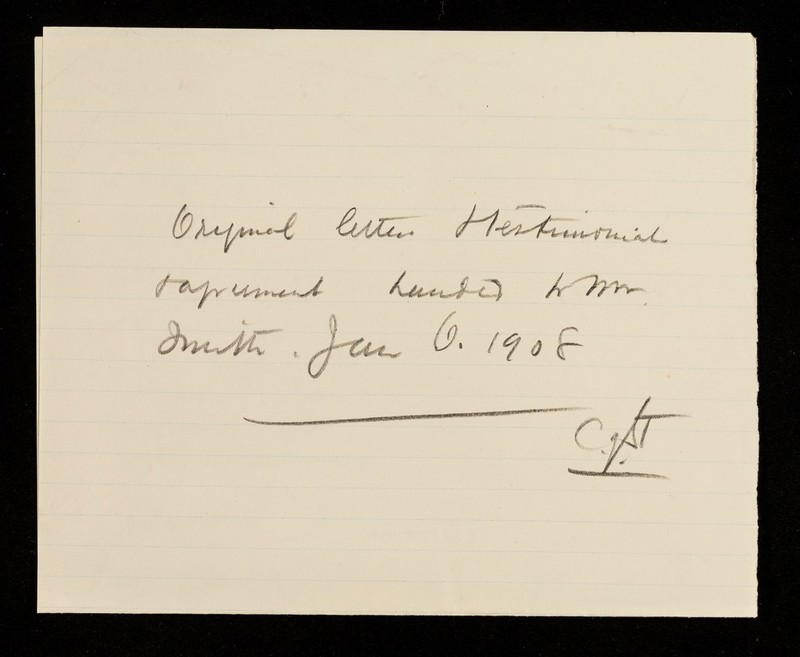 Original letter & testimonial
& agreement handed to Mr.
Smith. Jan 6. 1908